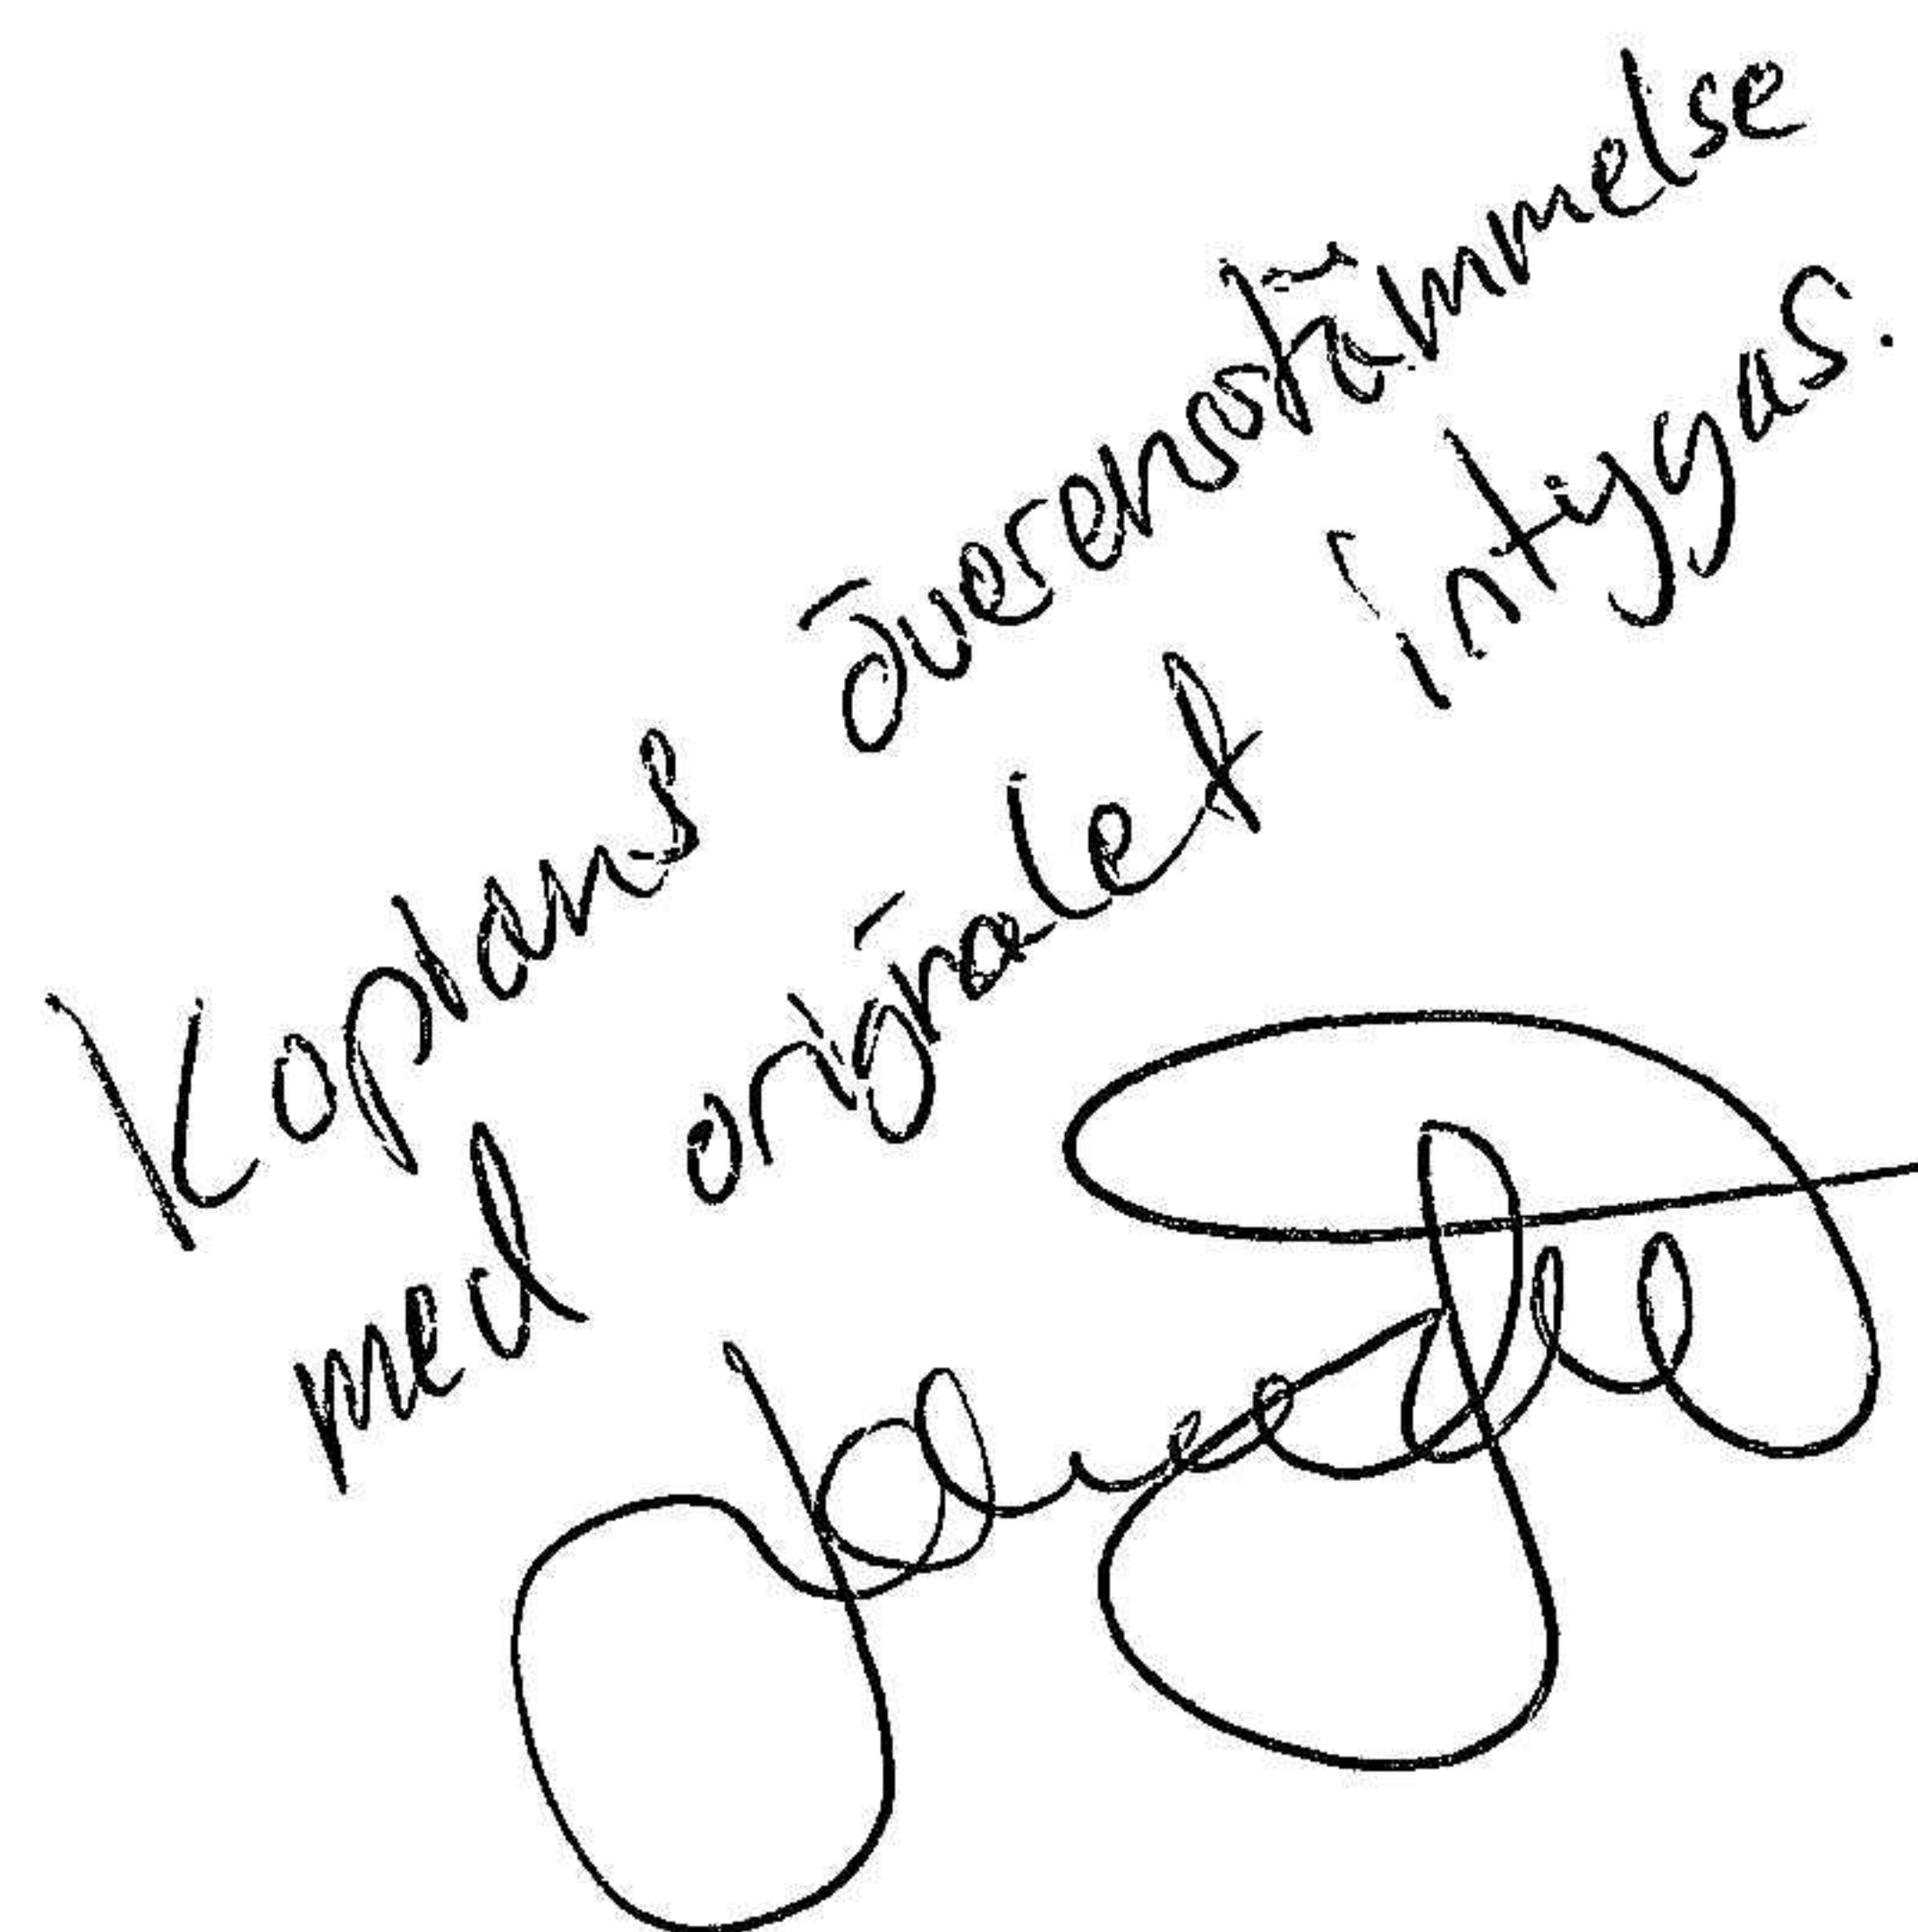 Kopians överensstämmelse
med originalet intygas.